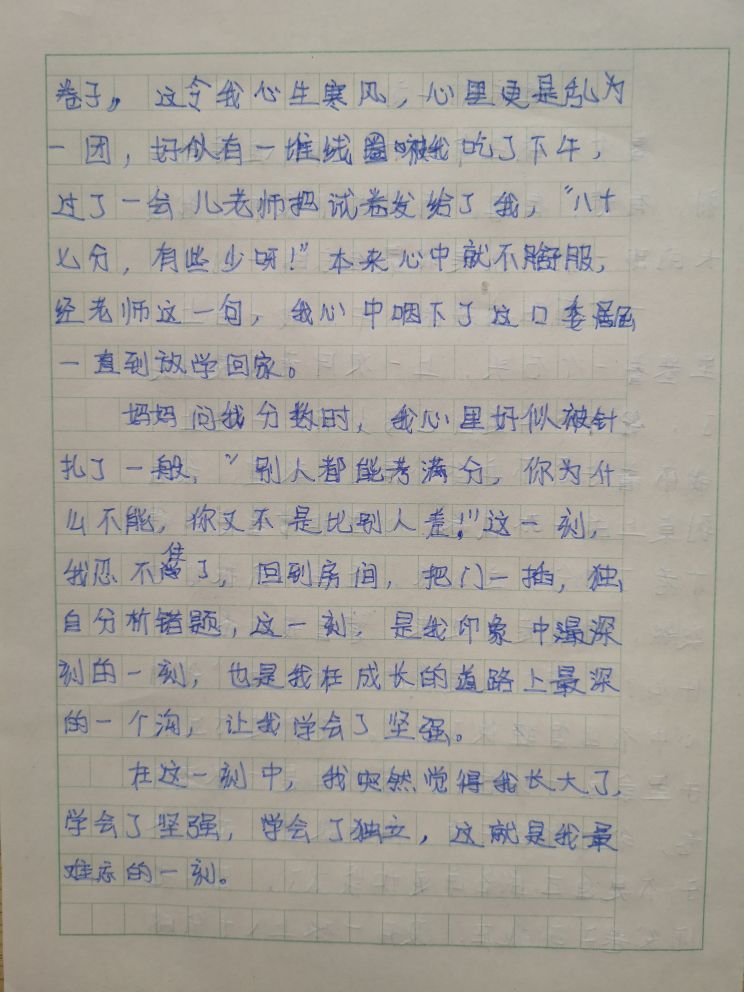 卷子。这令我心生寒风，心里更是乱为
一团，好似有一堆线圈被我吃了下午，
过了一会儿老师把试卷发给了我，“八十
七分，有些少呀！”本来心中就不舒服，
经老师这一句，我心中咽下了这口委屈
一直到放学回家。
妈妈问我分数时，我心里好似被针
扎了一般，“别人都能考满分，你为什
么不能，你又不是比别人差！”这一刻，
我忍不住了，回到房间，把门一插，独
自分析错题，这一刻，是我印象中最深
刻的一刻，也是我在成长的道路上最深
的一个沟，让我学会了坚强。
在这一刻中，我突然觉得我长大了，
学会了坚强，学会了独立，这就是我最
难忘的一刻。